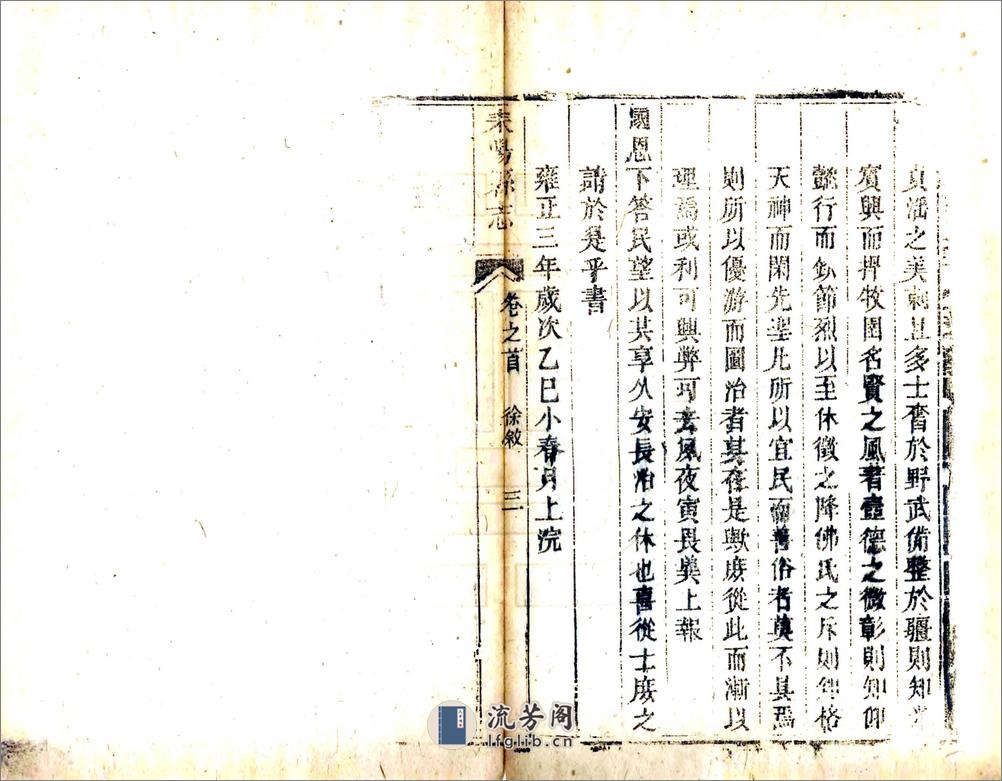 貞潘之美刺且多士奮於野武備整於疆則知
賓興而捍牧圉名賢之風著壼德之微彰則知仰
懿行而欽節烈以至休徵之降佛氏之斥則知格
天神而閑先聖凡所以宜民而善俗者莫不具焉
則所以優游而圖治者其在是歟庶從此而漸以
理焉或利可興弊可去夙夜寅畏冀上報
國恩下答民望以共享久安長治之休也喜從士庶之
請於是乎書
雍正三年歲次乙巳小春月上浣
耒陽縣志 卷之首 徐敘 三
流芳阁
lfglib.cn